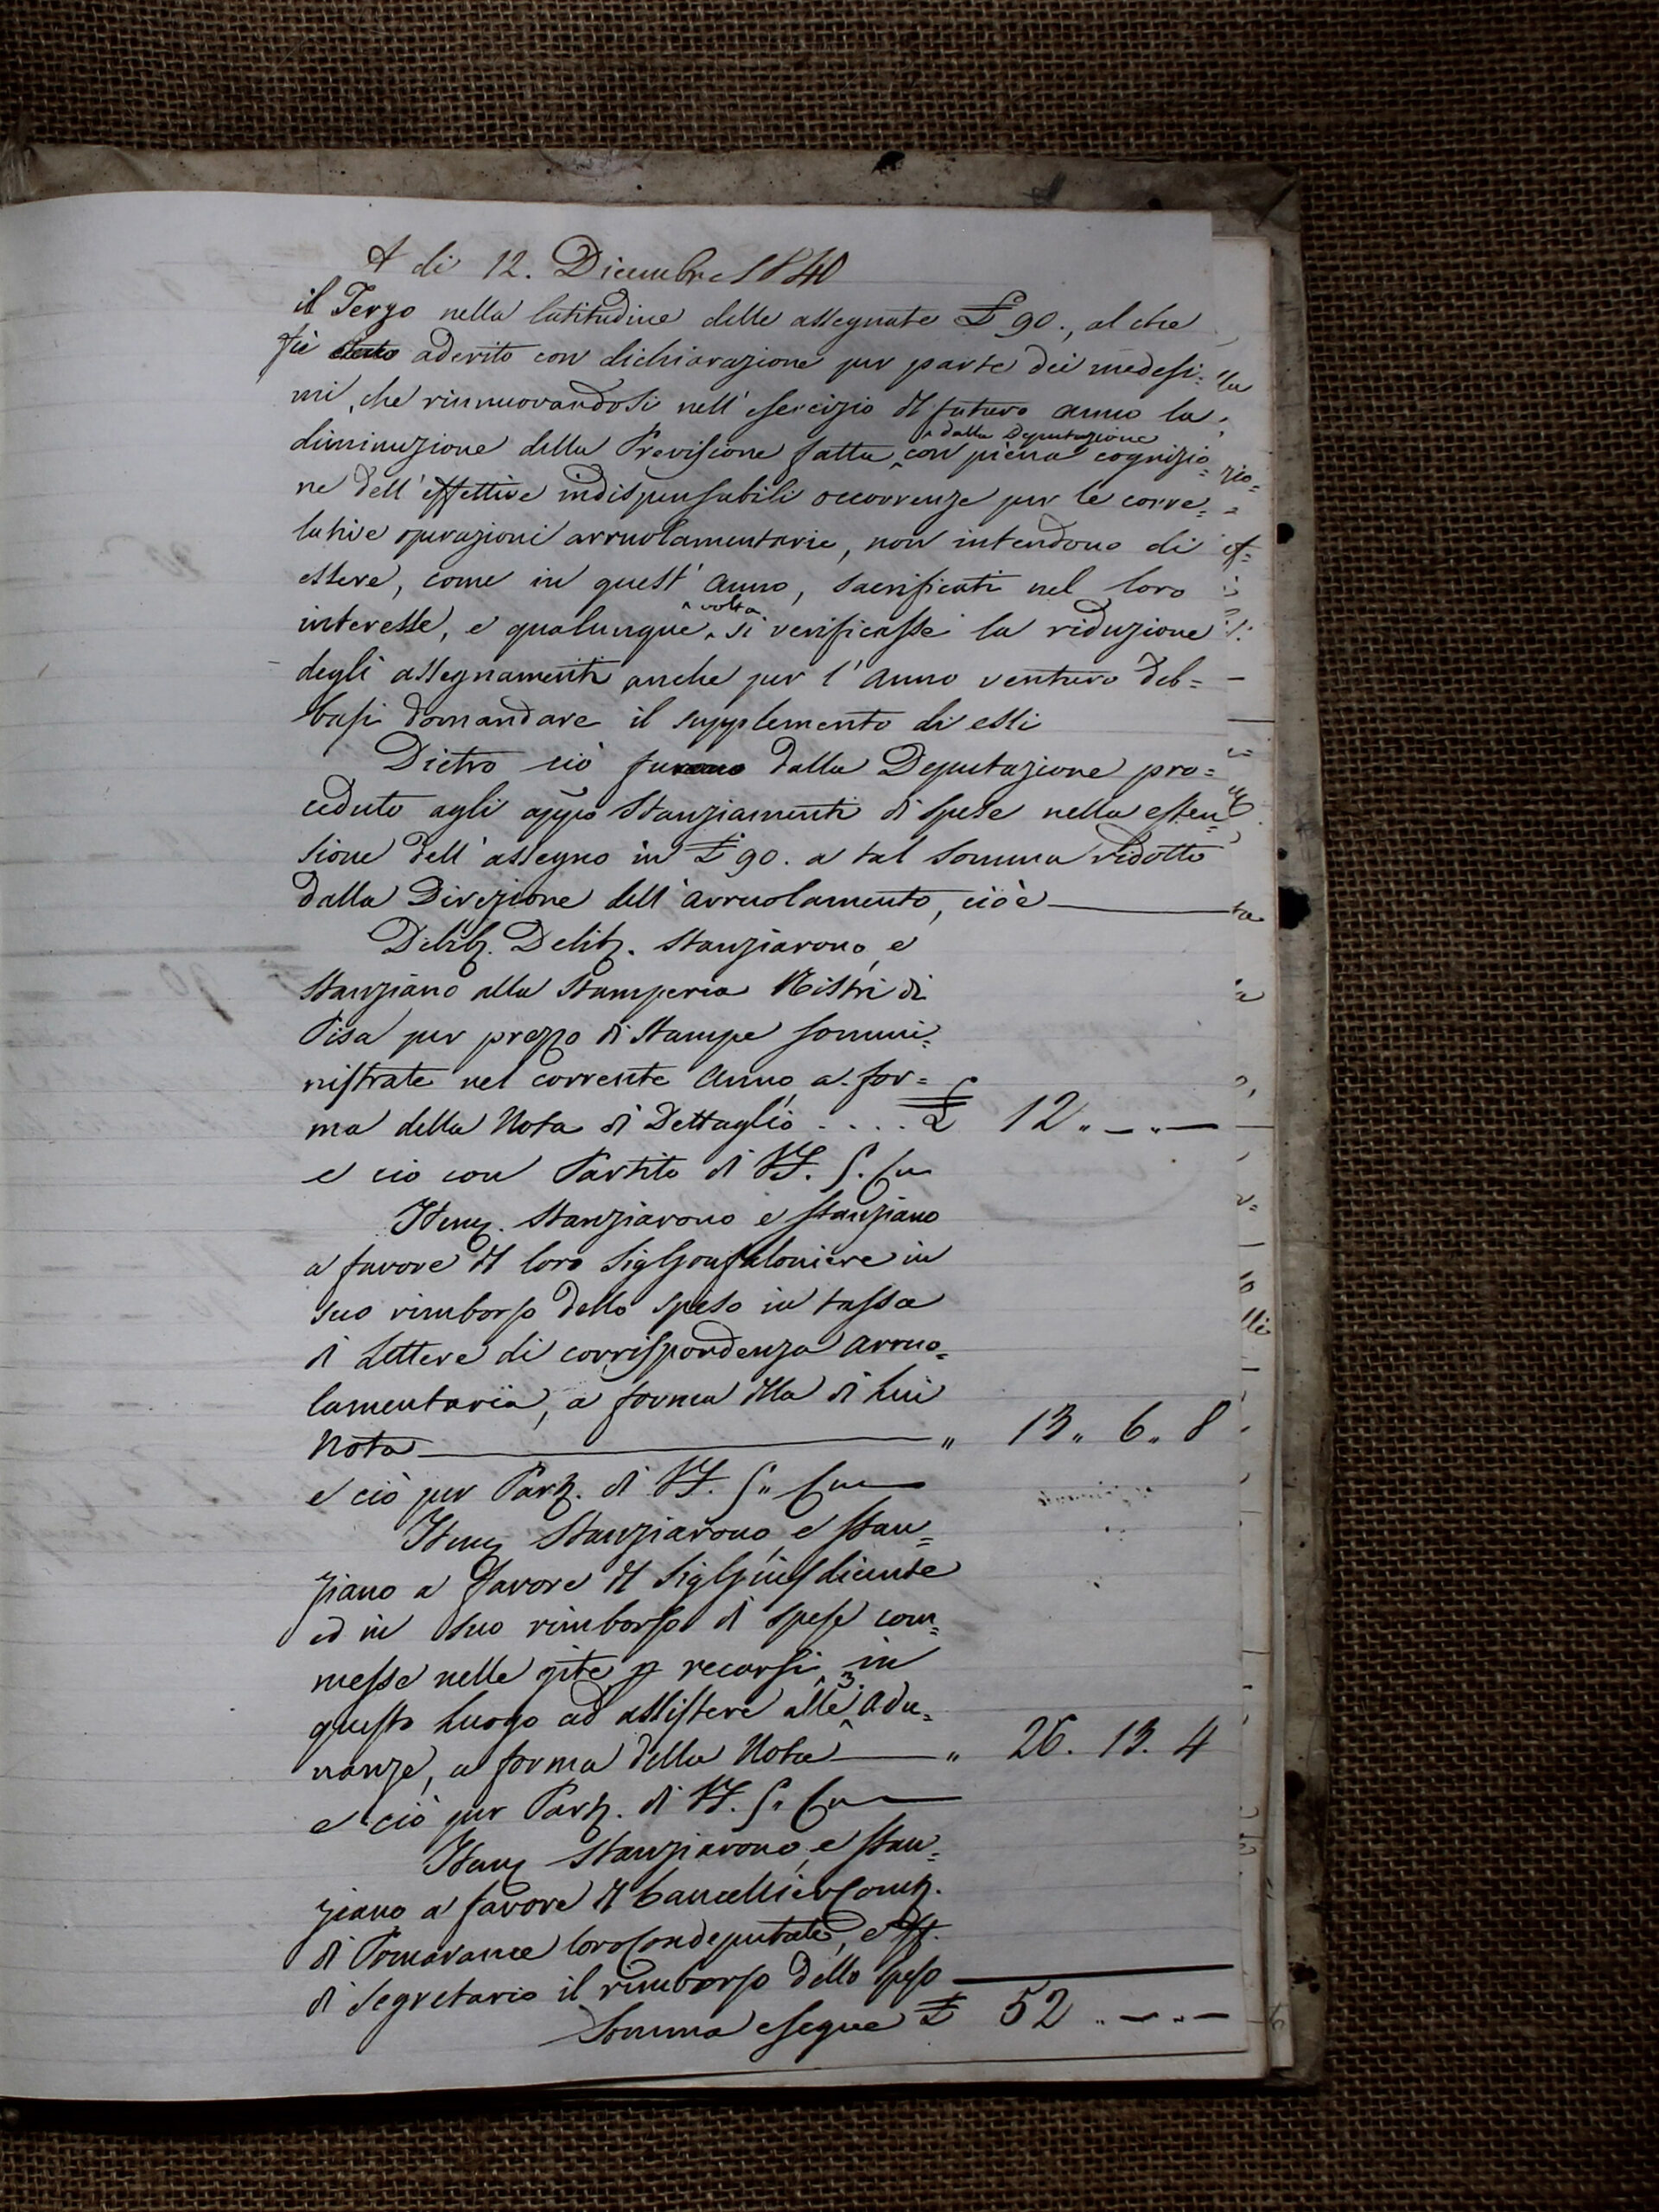 A di 12. Dicembre 1840
il Terzo nella latitudine delle assegnate £ 90., al che
fù aderito con dichiarazione per parte dei medesi=
mi, che rinnuovandosi nell' esercizio del futuro anno la
diminuzione della Previsione fatta dalla Deputazione con piena cognizio=
ne dell' effettive indispensabili occorrenze per le corre=
lative operazioni arruolamentarie, non intendono di
essere, come in quest' anno, sacrificati nel loro
interesse, e qualunque volta si verificasse la riduzione
degli assegnamenti anche per l' anno venturo deb=
basi domandare il supplemento di essi
Dietro ciò fu dalla Deputazione pro=
ceduto agli appo Stanziamenti di spese nella esten=
sione dell' assegno in £ 90. a tal somma ridotto
dalla Direzione dell' arruolamento, cioè
Delib. Delib. stanziarono, e
stanziano alla Stamperia Nistri di
Pisa per prezzo di stampe sommi=
nistrate nel corrente anno, a for=
ma della Nota di Dettaglio .... £ 12 " — " —
e ciò con Partito di VF.
Item. Stanziarono e stanziano
a favore del loro Sig Gonfaloniere in
suo rimborso dello speso in tassa
di Lettere di corrispondenza arruo=
lamentaria, a forma della di lui
Nota " 13 " 6 " 8
e ciò per Part. di VF.
Item Stanziarono, e stan=
ziano a favore del Sig Giusdicente
ed in suo rimborso di spese com=
messe nelle gite p recarsi in
questo luogo ad assistere alle 3 adu=
nanze, a forma della Nota " 26. 13. 4
e ciò per Part. di VF.
Item Stanziarono, e stan=
ziano a favore del Cancellier Com.
di Pomarance loro Condeputato, e ff.
di Segretario il rimborso dello speso
Somma e segue £ 52 " — " —